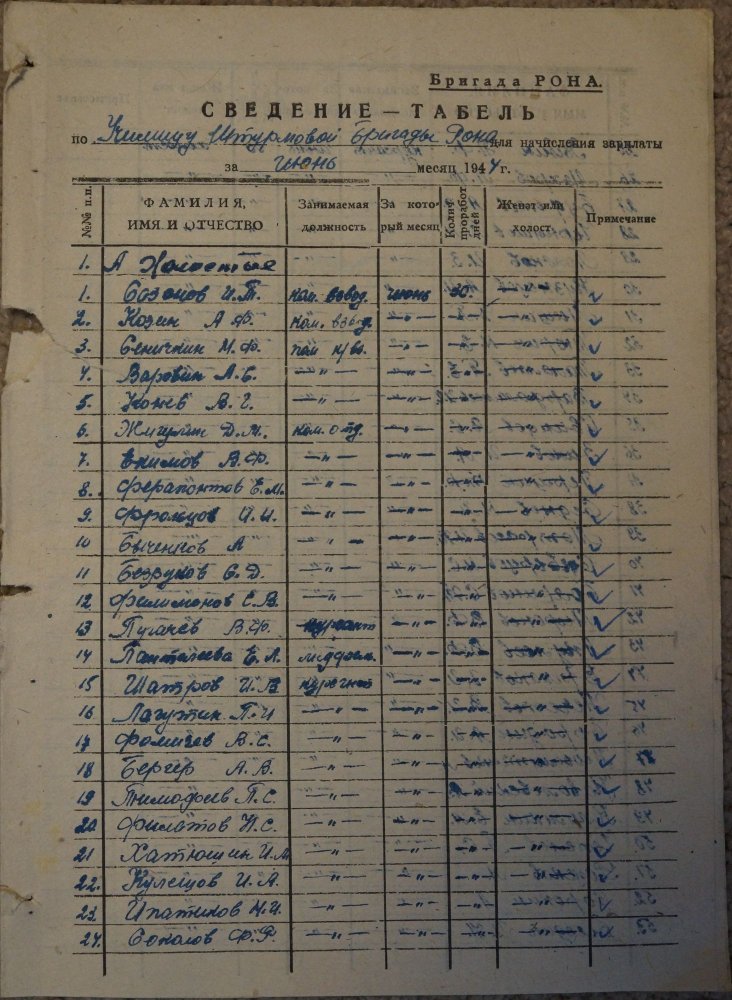 Бригада РОНА.
СВЕДЕНИЕ — ТАБЕЛЬ
по Училищу Штурмовой Бригады Рона для начисления зарплаты
за июнь месяц 1944 г.
№№ п.п. ФАМИЛИЯ, ИМЯ И ОТЧЕСТВО Занимаемая должность За который месяц Колич. проработ. дней Женат или холост. Примечание
1. А Холостые
1. Созонов И.Т. ком. взвод. июнь 30.
2. Козин А.Ф. ком. взвод. —"—
3. Сеничкин М.Ф. —"—
4. Варовин А.Е. —"—
5. Конев В.Г. —"—
6. Жигулин Д.М. ком. отд. —"—
7. Екимов В.Ф. —"— —"—
8. Ферапонтов Е.М. —"— —"—
9. И.И. —"— —"—
10 А —"— —"—
11 Безруков С.Д. —"— —"—
12 Филимонов Е.В. —"— —"—
13 Пугачев В.Ф. курсант —"—
14 Е.Л. —"—
15 Шатров И.В. курсант —"—
16 Лагутин П.И —"— —"—
17 Фомичев В.С. —"— —"—
18 Бергер А.В. —"— —"—
19 Тимофеев П.С. —"— —"—
20 Филатов Н.С. —"— —"—
21 Хатюшин И.М —"— —"—
22. Кулешов И.А. —"— —"—
23. Ипатиков Н.И. —"— —"—
24. Соколов Ф.Р. —"— —"—